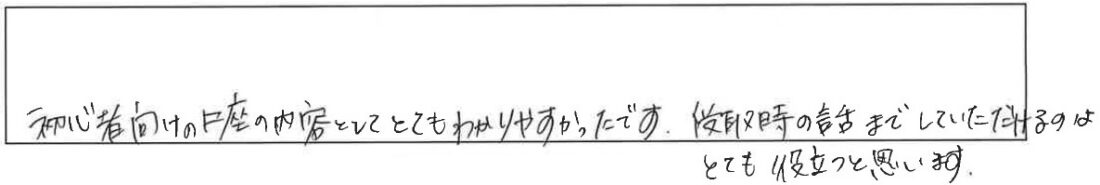 初心者向けの口座の内容としてとてもわかりやすかったです. 受取時の話までしていただけるのは
とても役立つと思います.